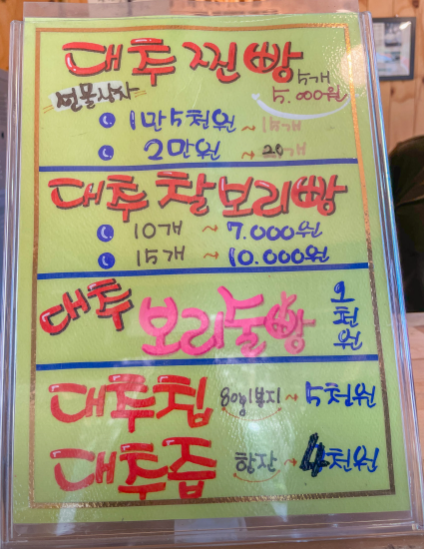 대추찐빵 5개
5.000원
선물상자
1만5천원 ~ 15개
2만원 ~ 20개
대추찰보리빵
10개 ~ 7.000원
15개 ~ 10.000원
대추 보리술빵 5천원
대추칩 80g 1봉지 ~ 5천원
대추즙 한잔 → 4천원